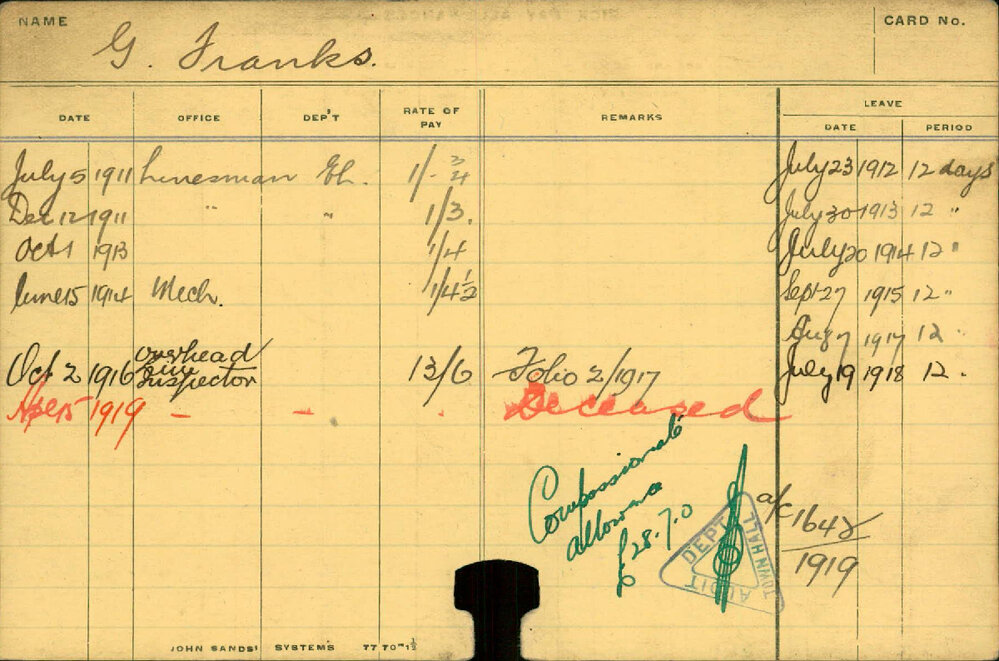 NAME
CARD No.
G. Franks.
DATE OFFICE DEP'T RATE OF PAY REMARKS LEAVE
DATE PERIOD
July 5 1911 Linesman El. 1/- 3/4 July 23 1912 12 days
Dec 12 1911 " " 1/3. July 30 1913 12 "
Oct 1 1913 1/4 July 20 1914 12 "
June 15 1914 Mech. 1/4 1/2 Sept 27 1915 12 "
Aug 7 1917 12 "
Oct 2 1916 overhead line Inspector 13/6 Folio 2/1917 July 19 1918 12 .
15 1919 - - . Deceased
Compassionate
allowance
£28.7.0
a/c 1642
1919
DEPT
TOWN HALL
AUDIT
JOHN SANDS' SYSTEMS